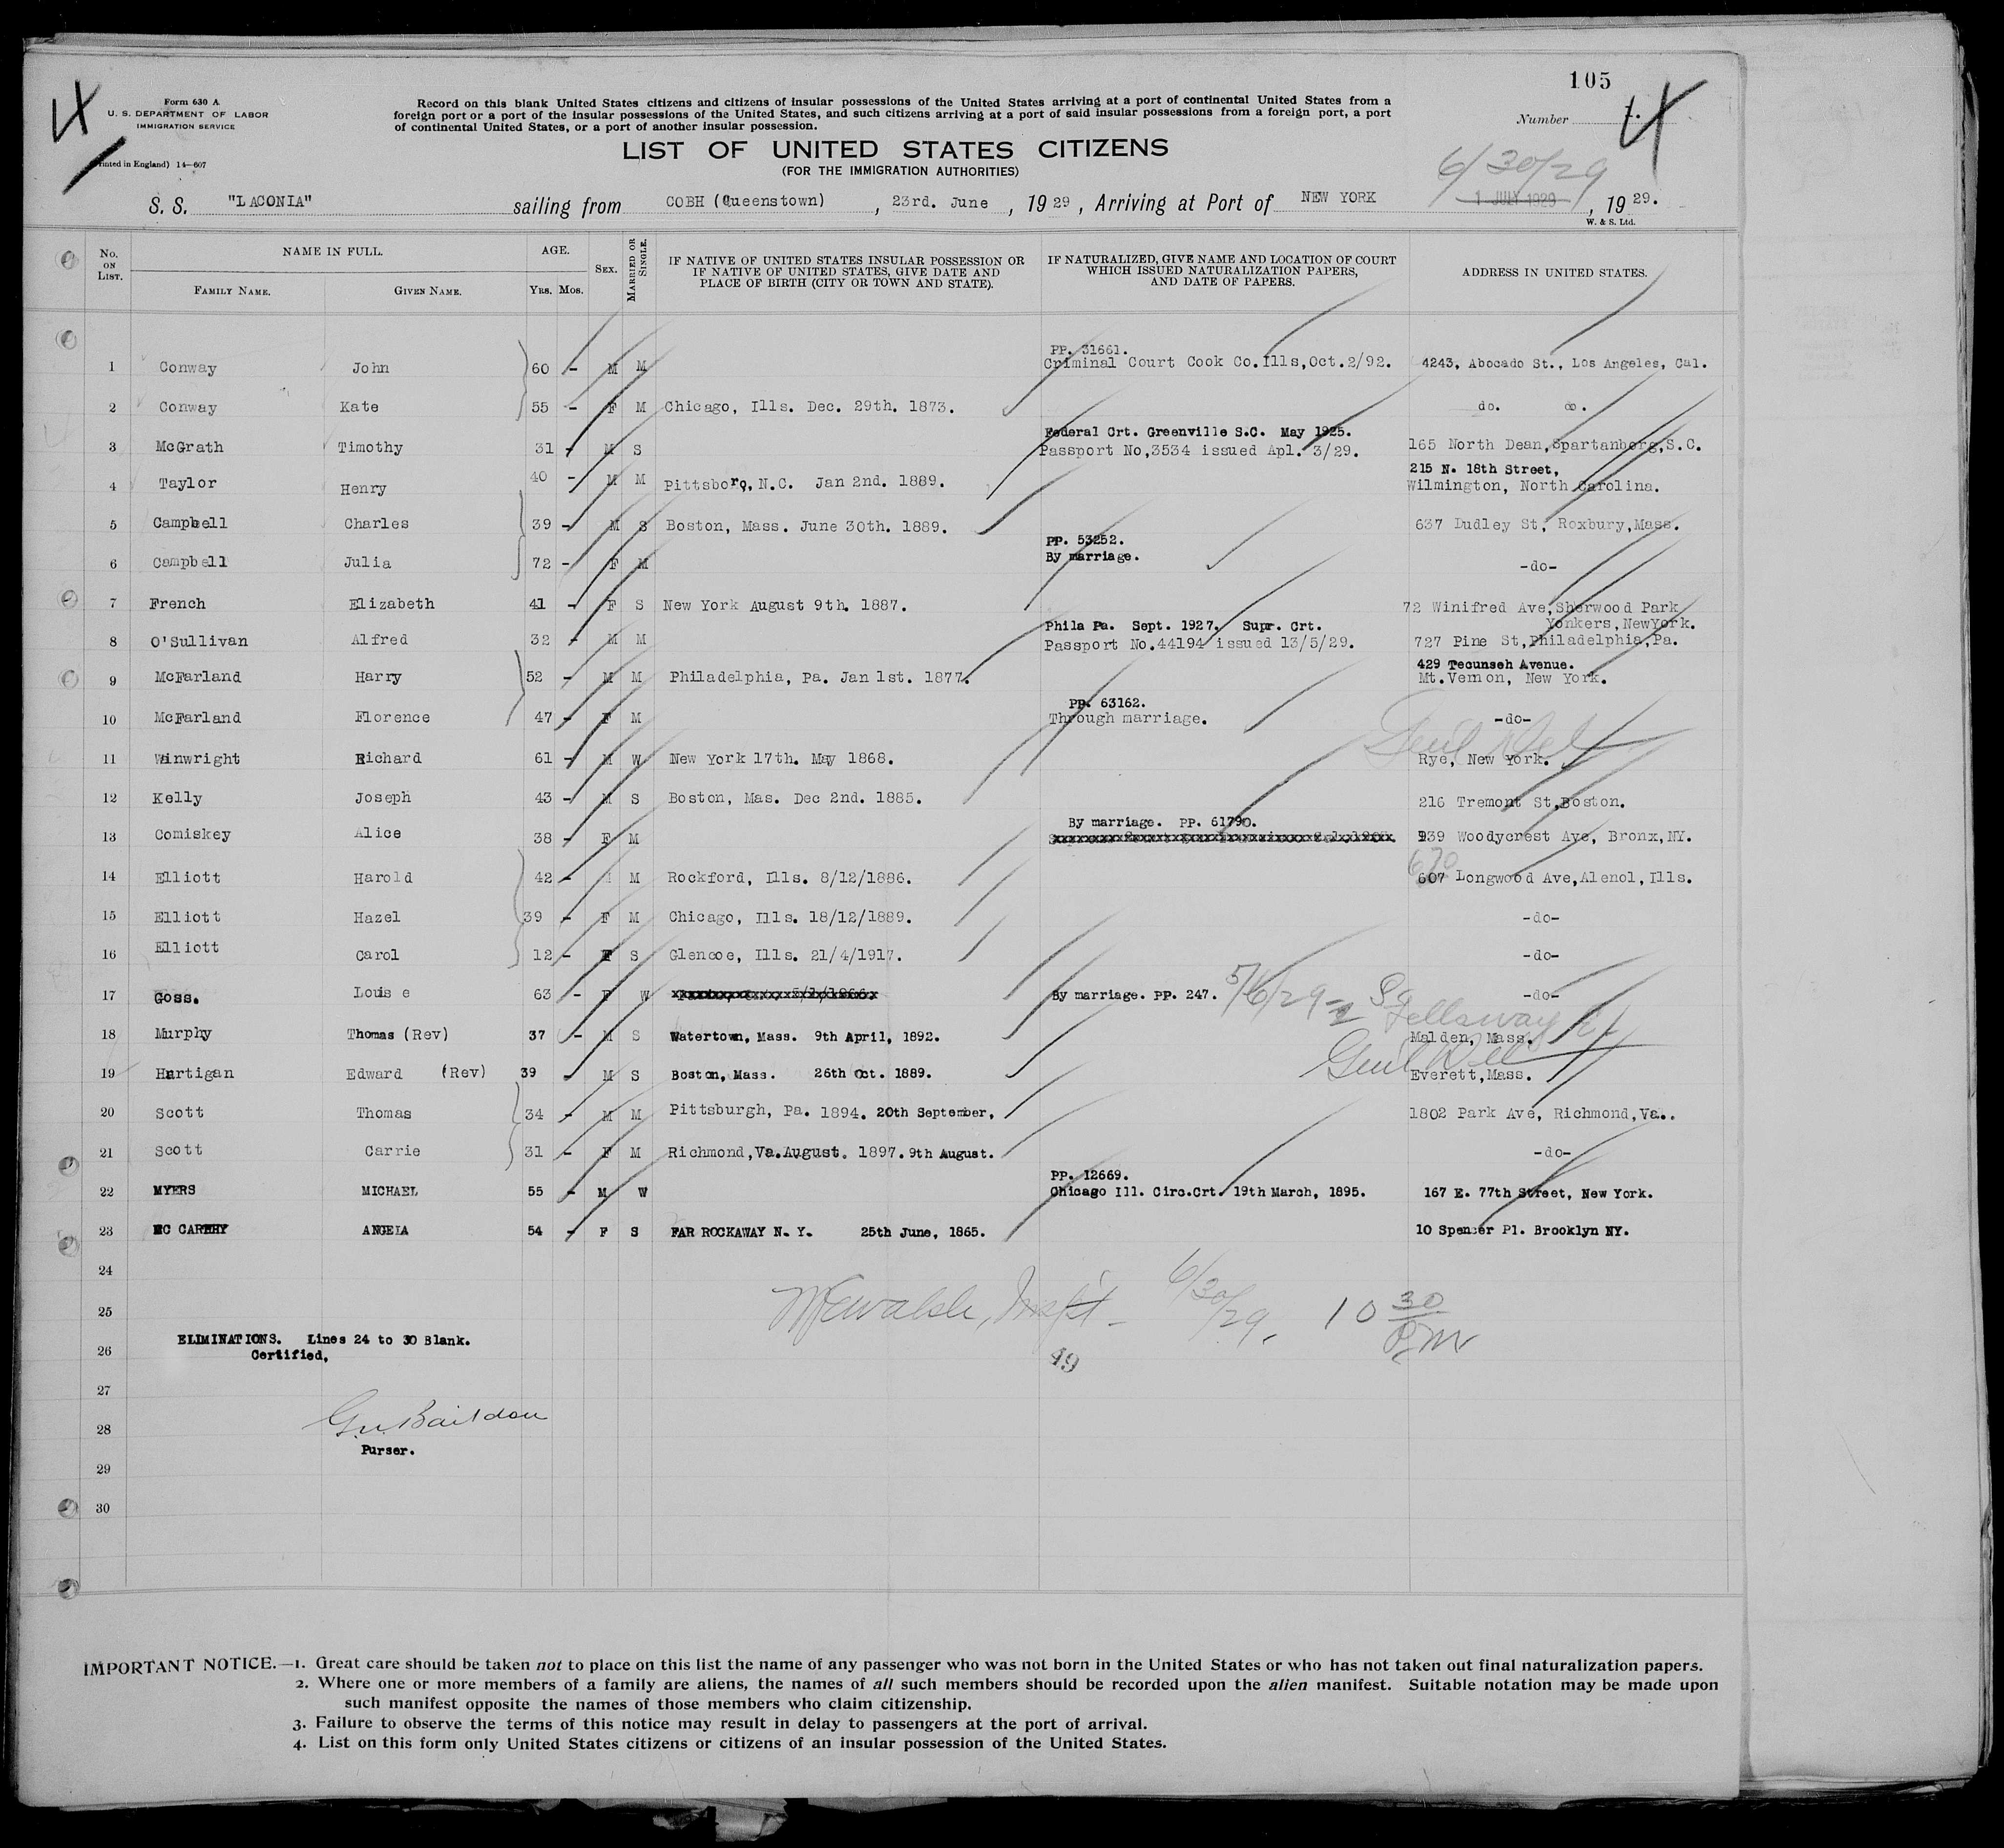 105
4
4
Form 630 A
U. S. DEPARTMENT OF LABOR
IMMIGRATION SERVICE
inted in England) 14—607
Record on this blank United States citizens and citizens of insular possessions of the United States arriving at a port of continental United States from a
foreign port or a port of the insular possessions of the United States, and such citizens arriving at a port of said insular possessions from a foreign port, a port
of continental United States, or a port of another insular possession.
Number
LIST OF UNITED STATES CITIZENS
(FOR THE IMMIGRATION AUTHORITIES)
6/30/29
S. S. "LACONIA" sailing from COBH (Queenstown), 23rd. June, 19 29, Arriving at Port of NEW YORK 1 JULY 1929, 19 29.
W. & S. Ltd.
No. ON LIST. NAME IN FULL. AGE. SEX. MARRIED OR SINGLE. IF NATIVE OF UNITED STATES INSULAR POSSESSION OR IF NATIVE OF UNITED STATES, GIVE DATE AND PLACE OF BIRTH (CITY OR TOWN AND STATE). IF NATURALIZED, GIVE NAME AND LOCATION OF COURT WHICH ISSUED NATURALIZATION PAPERS, AND DATE OF PAPERS. ADDRESS IN UNITED STATES.
FAMILY NAME. GIVEN NAME. YRS. MOS.
PP. 31661.
1 Conway John 60 - M M Criminal Court Cook Co.Ills,Oct.2/92. 4243, Abocado St., Los Angeles, Cal.
2 Conway Kate 55 - F M Chicago, Ills. Dec. 29th. 1873. do. do.
Federal Crt. Greenville S.C. May 1925.
3 McGrath Timothy 31 - M S Passport No,3534 issued Apl. 3/29. 165 North Dean,Spartanberg,S.C.
215 N. 18th Street,
4 Taylor Henry 40 - M M Pittsboro, N.C. Jan 2nd. 1889. Wilmington, North Carolina.
5 Campbell Charles 39 - M S Boston, Mass. June 30th. 1889. 637 Dudley St, Roxbury,Mass.
PP. 53252.
6 Campbell Julia 72 - F M By marriage. -do-
7 French Elizabeth 41 - F S New York August 9th. 1887. 72 Winifred Ave,Sherwood Park
Yonkers,NewYork.
Phila Pa. Sept. 1927. Supr. Crt.
8 O'Sullivan Alfred 32 - M M Passport No.44194 issued 13/5/29. 727 Pine St,Philadelphia,Pa.
429 Tecunseh Avenue.
9 McFarland Harry 52 - M M Philadelphia, Pa. Jan 1st. 1877. Mt.Vernon, New York.
PP. 63162.
10 McFarland Florence 47 - F M Through marriage. -do-
11 Wainwright Richard 61 - M W New York 17th. May 1868. Rye, New York.
12 Kelly Joseph 43 - M S Boston, Mas. Dec 2nd. 1885. 216 Tremont St,Boston.
By marriage. PP. 61790.
13 Comiskey Alice 38 - F M 939 Woodycrest Ave, Bronx,NY.
670
14 Elliott Harold 42 - M Rockford, Ills. 8/12/1886. 607 Longwood Ave,Alenol,Ills.
15 Elliott Hazel 39 - F M Chicago, Ills. 18/12/1889. -do-
16 Elliott Carol 12 - F S Glencoe, Ills. 21/4/1917. -do-
17 Goss. Louise 63 - F W By marriage. PP. 247. 5/6/29 -do-
Fellsway
18 Murphy Thomas (Rev) 37 - M S Watertown, Mass. 9th April, 1892. Malden, Mass.
19 Hartigan Edward (Rev) 39 - M S Boston, Mass. 26th Oct. 1889. Everett,Mass.
20 Scott Thomas 34 - M M Pittsburgh, Pa. 1894. 20th September, 1802 Park Ave, Richmond,Va..
21 Scott Carrie 31 - F M Richmond,Va.August. 1897. 9th August. -do-
PP. 12669.
22 MYERS MICHAEL 55 - M W Chicago Ill. Circ.Crt. 19th March, 1895. 167 E. 77th Street, New York.
23 MC CARTHY ANGELA 54 - F S FAR ROCKAWAY N. Y. 25th June, 1865. 10 Spencer Pl. Brooklyn NY.
24
25 6/30/29. 10 30 PM
ELIMINATIONS. Lines 24 to 30 Blank.
26 Certified, 49
27
28
Purser.
29
30
IMPORTANT NOTICE.—1. Great care should be taken not to place on this list the name of any passenger who was not born in the United States or who has not taken out final naturalization papers.
2. Where one or more members of a family are aliens, the names of all such members should be recorded upon the alien manifest. Suitable notation may be made upon
such manifest opposite the names of those members who claim citizenship.
3. Failure to observe the terms of this notice may result in delay to passengers at the port of arrival.
4. List on this form only United States citizens or citizens of an insular possession of the United States.